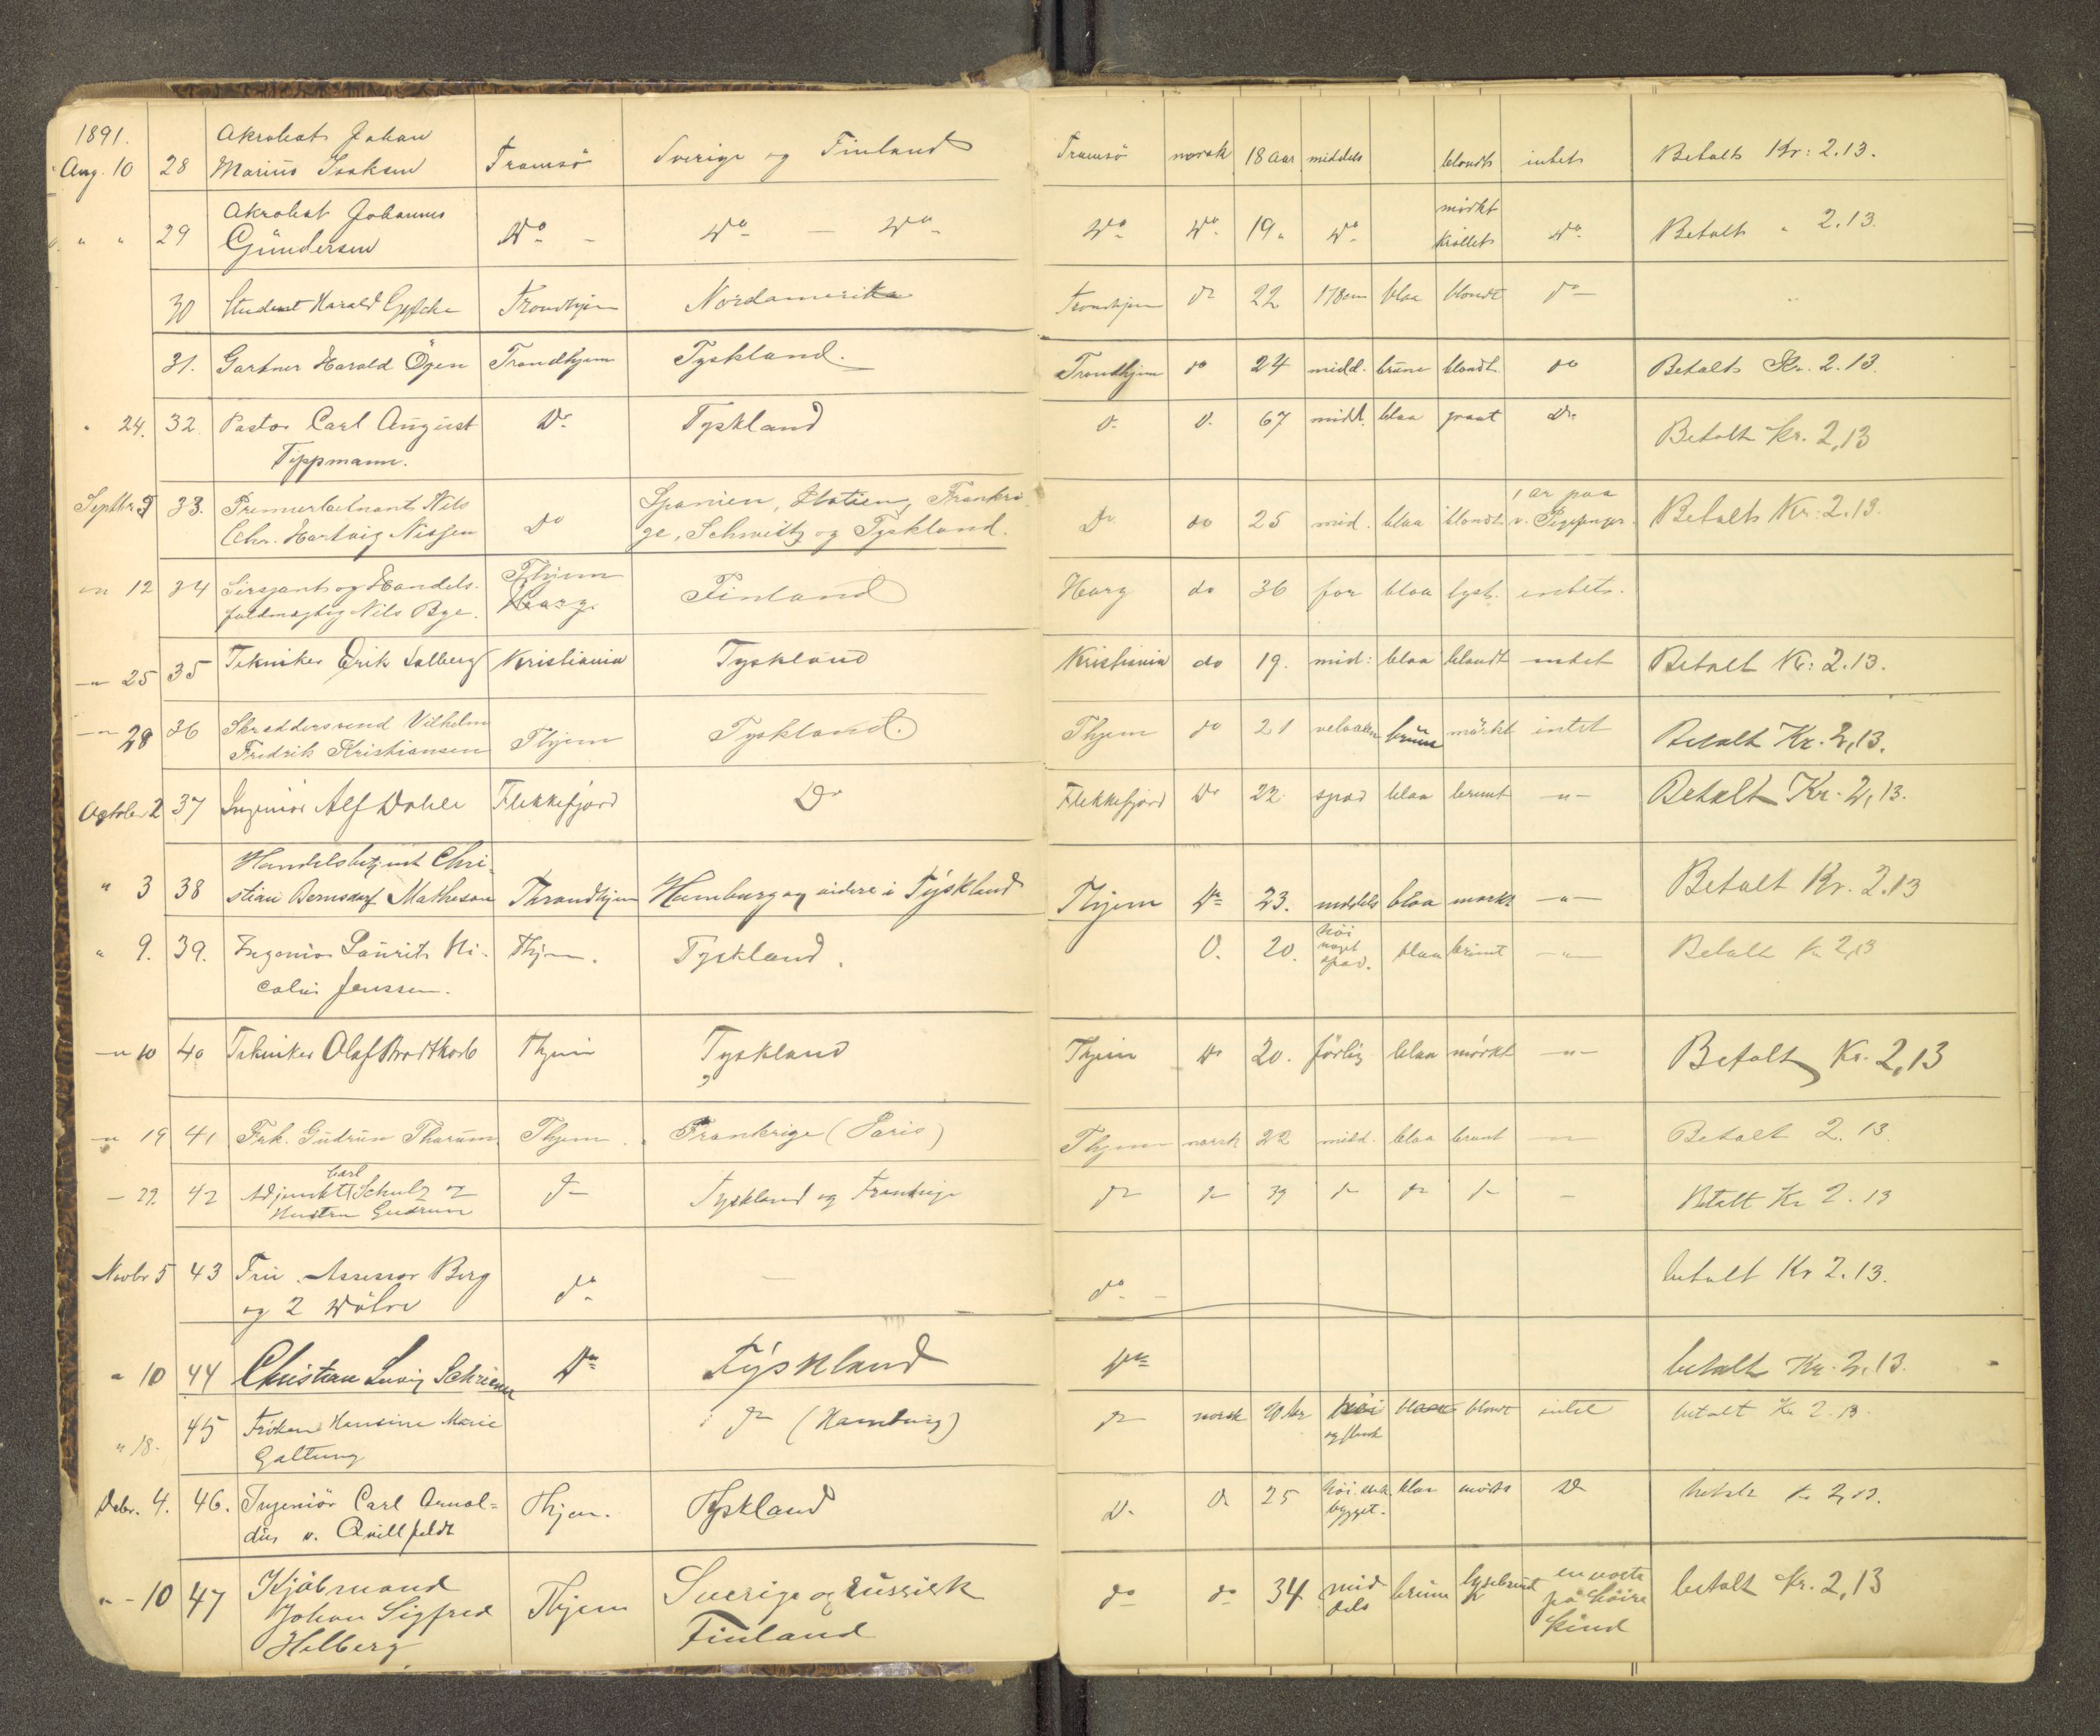 1891.
Aug. 10 28 Akrobat Johan
Marius Isaksen Tromsö Sverige og Finland Tromsö norsk 18 aar middels blondt intet Betalt Kr: 2.13.
" " 29 Akrobat Johannes
Gundersen Do - Do - Do Do Do 19 " Do mørkt
krøllet Do Betalt " 2.13.
30 Student Harald Trondhjem Nordamerika Trondhjem do 22 178cm blaa blondt do
31. Gartner Harald Öyen Trondhjem Tyskland. Trondhjem do 24 midd. brune blondt do Betalt Kr. 2.13.
" 24. 32. Pastor Carl August
Tippmann. Do Tyskland Do Do 67 midd. blaa graat Do Betalt Kr. 2,13
Septbr 9 33. Premierløitnant Nils
Chr. Hartvig Nissen Do Spanien, Italien, Frankri-
ge, Schweitz og Tyskland. Do do 25 mid. blaa blondt 1 ar paa
v. Pegefinger. Betalt Kr. 2.13.
" 12 34 Sersjant og Handels-
fuldmægtig Nils Bye. Thjem
Finland Harg do 36 før blaa lyst. intet.
-"- 25 35 Tekniker Erik Solberg Kristiania Tyskland Kristiania do 19. mid: blaa blondt intet Betalt Kr: 2.13.
-"- 28 36 Skreddersvend Vilhelm
Fredrik Kristiansen Thjem Tyskland. Thjem do 21 velvoksen brune mörkt intet Betalt Kr. 2,13.
Oktober 2 37 Ingeniør Alf Dahle Flekkefjord Do Flekkefjord Do 22 spæd blaa brunt -"- Betalt Kr. 2,13.
" 3 38 Handelsbetjent Chri-
stian Bernsdorf Matheson Throndhjem Hamburg og videre i Tyskland Thjem Do 23. middels blaa mørkt -"- Betalt Kr. 2.13
" 9. 39. Ingeniør Laurits Ni-
colai Jenssen. Thjem. Tyskland. D. 20. høi
noget
spæd. blaa brunt -"- Betalt Kr 2,13
-"- 10 40 Tekniker Olaf Brodtkorb Thjem Tyskland Thjem Do 20. førlig blaa mörkt -"- Betalt Kr. 2,13
-"- 19 41 Frk. Gudrun Tharum Thjem. Frankrige (Paris) Thjem norsk 22 midd. blaa brunt -"- Betalt 2.13.
- 29. 42 Adjunkt Carl Schulz og
Hustru Gudrun do Tyskland og Frankrige do do 39 do do do - Betalt Kr 2.13
Novbr 5 43 Fru Assessor Berg
og 2 Døtre do - do - betalt Kr 2.13.
" 10 44 Christian Lovig Schreiner Do Tyskland Do betalt Kr. 2,13.
" 18. 45 Frøken Hansine Marie
Galtung do (Hamburg) do norsk 20 Aar høi
og slank blaa blondt intet betalt Kr 2.13.
Debr. 4. 46. Ingeniör Carl Arnol-
dus v. Quillfeldt Thjem. Tyskland D. D. 25 høi
bygget. blaa mørkt D. betalt Kr 2,13.
" - 10 47 Kjøbmand
Johan Sigfred
Helberg Thjem Sverige og russisk
Finland do do 34 mid
dels brune lysebrunt en vorte
på høire
kind betalt Kr. 2,13